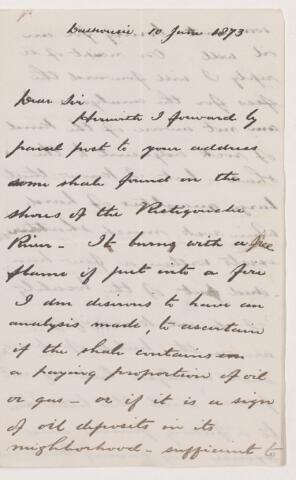 Dalhousie 10 June 1873
Dear Sir
Herewith I forward by
parcel post to your address
some shale found on the
shores of the Restigouche
River - It burns with a free
flame if put into a fire
I am desirous to have an
analysis made, to ascertain
if the shale contains
a paying proportion of oil
or gas - or if it is a sign
of oil deposits in its
neighborhood - sufficient to